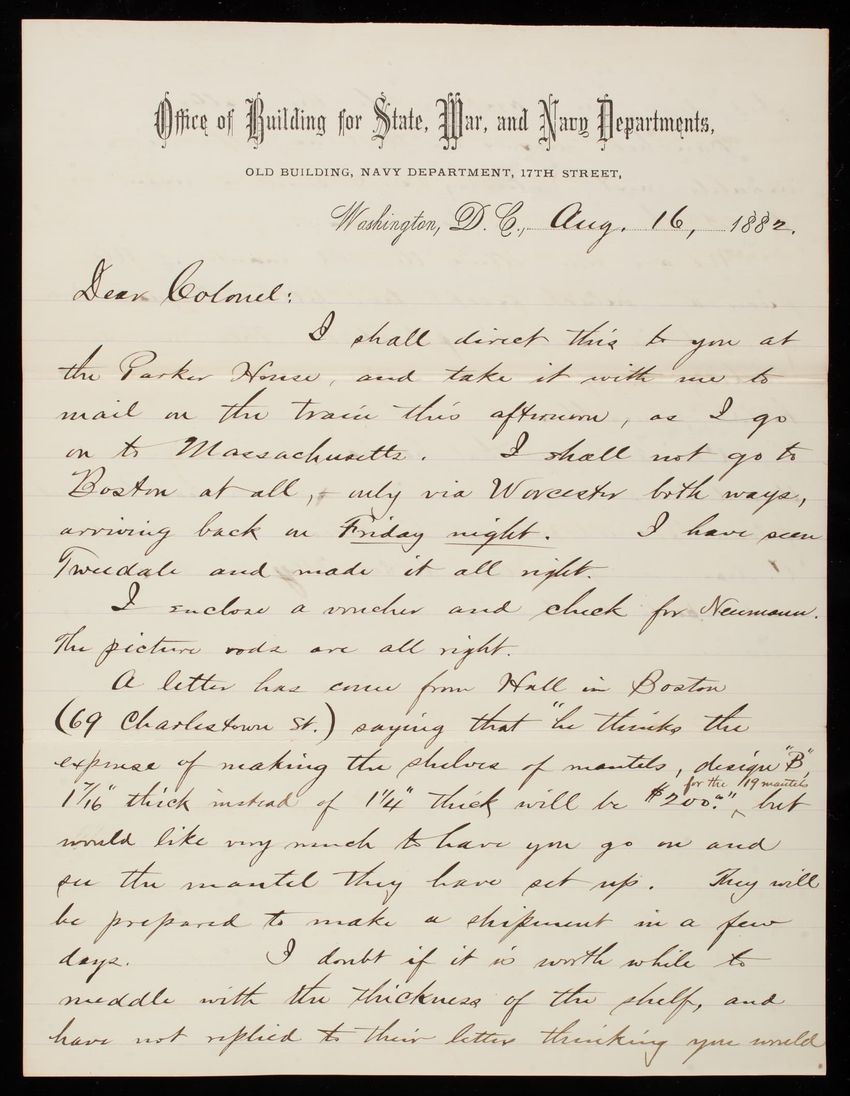 Office of Building for State, War, and Navy Departments,
OLD BUILDING, NAVY DEPARTMENT, 17TH STREET,
Washington, D. C., Aug. 16, 1882.
Dear Colonel:
I shall direct this to you at
the Parker House, and take it with me to
mail on the train this afternoon, as I go
on to Massachusetts. I shall not go to
Boston at all, + only via Worcester both ways,
arriving back on Friday night. I have seen
Tweedale and made it all right.
I enclose a voucher and check for Neumann.
The picture rods are all right.
A letter has come from Hall in Boston
(69 Charlestown St.) saying that "he thinks the
expense of making the shelves of mantels, design "B",
for the 19 mantels
1 7/16" thick instead of 1 1/4" thick will be $200.", but
would like very much to have you go on and
see the mantel they have set up. They will
be prepared to make a shipment in a few
days. I doubt if it is worth while to
meddle with the thickness of the shelf, and
have not replied to their letter thinking you would